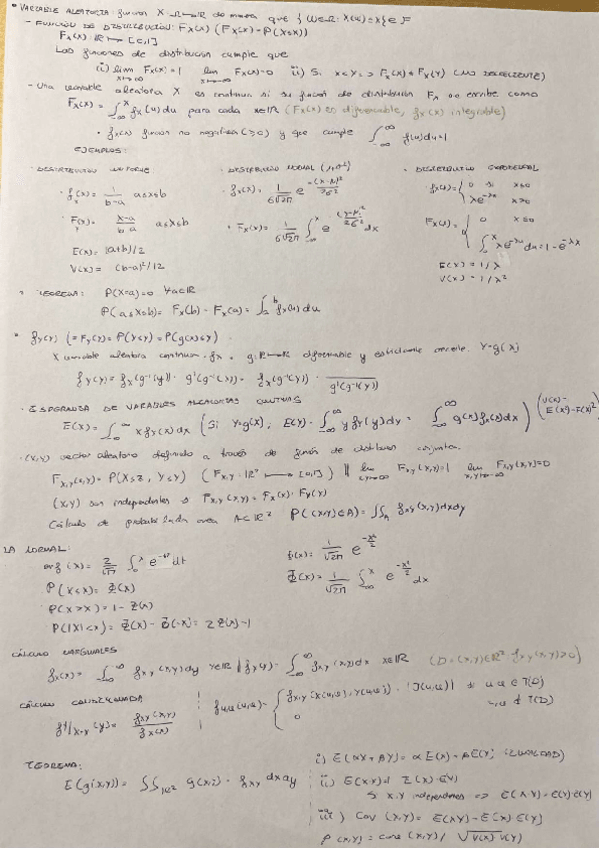 • VARIABLE ALEATORIA: función X: Ω→ℝ de manera que {W∈Ω: X(ω)≤x}∈F
- FUNCIÓN DE DISTRIBUCIÓN: Fx(x) (Fx(x) = P(X≤x))
Fx(x): ℝ → [0,1]
Las funciones de distribución cumple que
i) lim x→∞ Fx(x)=1 lim Fx(x)=0 ii) Si x<y => Fx(x) ≤ Fx(y)
- Una variable aleatoria X es continua si su función de distribución Fx se escribe como
Fx(x) = ∫_-∞^x fx(u) du para cada x∈ℝ (Fx(x) es diferenciable, fx(x) integrable)
• fx(x) función no negativa (≥0) y que cumple ∫_-∞^∞ f(u)du=1
EJEMPLOS:
· DISTRIBUCIÓN UNIFORME · DISTRIBUCIÓN NORMAL (μ,σ²) · DISTRIBUCIÓN EXPONENCIAL
· fx(x) = 1/(b-a) a≤x≤b · fx(x) = 1/(σ√2π) e^(-(x-μ)²/2σ²) · fx(x) = { 0 si x≤0
λe^-λx x>0
· Fx(x) = (x-a)/(b-a) a≤x≤b · Fx(x) = 1/(σ√2π) ∫_-∞^x e dx Fx(x) = { 0 x≤0
E(x) = (a+b)/2 ∫_0^x λe^-λu du = 1-e^-λx
V(x) = (b-a)²/12 E(x) = 1/λ
V(x) = 1/λ²
· TEOREMA: P(X=a)=0 ∀a∈ℝ
P(a≤X≤b) = Fx(b) - Fx(a) = ∫_a^b fx(u) du
• fy(y) (= Fy(y) = P(Y≤y) = P(g(x)≤y)
X variable aleatoria continua · fx = g: ℝ→ℝ diferenciable y estrictamente creciente. Y=g(x)
fy(y) = fx(g⁻¹(y)) · g'(g⁻¹(x)) = fx(g⁻¹(y)) · 1/g'(g⁻¹(y))
· ESPERANZA DE VARIABLES ALEATORIAS CONTINUAS
E(x) = ∫_-∞^∞ x fx(x) dx (Si Y=g(x), E(y) = ∫_-∞^∞ y fy(y) dy = ∫_-∞^∞ g(x) fx(x) dx) (V(x)=
E(x²)-E(x)²)
· (X,Y) vector aleatorio definido a través de función de distribución conjunta.
P(X≤x, Y≤y) (Fx,y: ℝ² → [0,1]) || lim Fx,y(x,y)=1 lim Fx,y(x,y)=0
(X,Y) son independientes si Fx,y(x,y) = Fx(x) · Fy(y)
Cálculo de probabilidad area A⊂ℝ² P((X,Y)∈A) = ∫∫_A fx,y(x,y) dxdy
LA NORMAL:
erf(x) = 2/√π ∫_0^x e dt φ(x) = 1/√2π e^(-x²/2)
P(X<x) = Φ(x) Φ(x) = 1/√2π ∫_-∞^x e^(-x²/2) dx
P(X>x) = 1 - Φ(x)
P(|X|<x) = Φ(x) - Φ(-x) = 2Φ(x)-1
CÁLCULO MARGINALES
fx(x) = ∫_-∞^∞ fx,y(x,y) dy ∈ℝ | fy(y) = ∫_-∞^∞ fx,y(x,y) dx x∈ℝ (D = (x,y)∈ℝ² fx,y(x,y)>0)
CÁLCULO CONDICIONADA
fY|X=x(y) = fxy(x,y)/fx(x) | { fx,y(x(u,v), y(u,v)) · |J(u,v)| si u,v ∈ T(D)
0 ∉ T(D)
TEOREMA:
E(g(x,y)) = ∫∫_ℝ² g(x,y) · fxy dx dy
i) E(αX+βY) = αE(x) + βE(y)
ii) E(x·y) E(x)·E(y)
Si X,Y independientes => E(X·Y) = E(x)·E(y)
iii) Cov(x,y) = E(XY) - E(x)·E(y)
ρ(x,y) = cov(x,y)/√V(x)V(y)